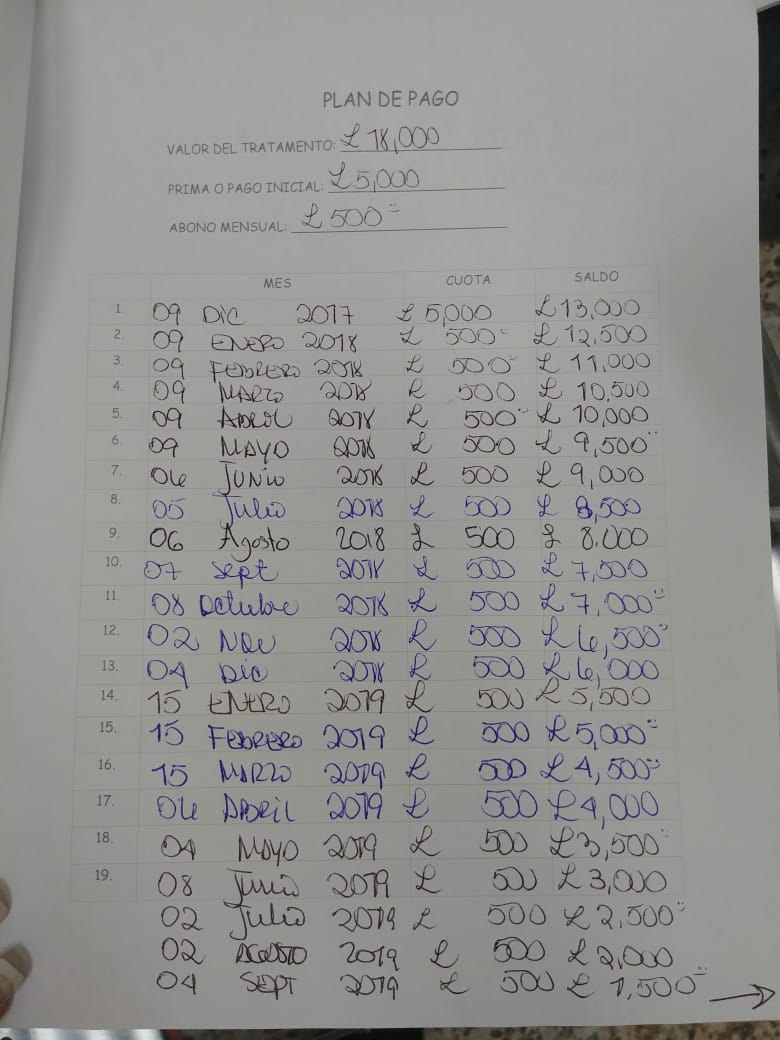 PLAN DE PAGO
VALOR DEL TRATAMENTO: £ 18,000
PRIMA O PAGO INICIAL: £5,000
ABONO MENSUAL: £ 500
MES CUOTA SALDO
1. 09 DIC 2017 £ 5,000 £13,000
2. 09 ENERO 2018 £ 500 £ 12,500
3. 09 FEBRERO 2018 £ 500 £ 11,000
4. 09 MARZO 2018 £ 500 £ 10,500
5. 09 ABRIL 2018 £ 500 £ 10,000
6. 09 MAYO 2018 £ 500 £ 9,500
7. 06 JUNIO 2018 £ 500 £ 9,000
8. 05 Julio 2018 £ 500 £ 8,500
9. 06 Agosto 2018 £ 500 £ 8.000
10. 07 Sept 2018 £ 500 £ 7,500
11. 08 Octubre 2018 £ 500 £ 7,000
12. 02 Nov 2018 £ 500 £6,500
13. 04 Dic 2018 £ 500 £6,000
14. 15 ENERO 2019 £ 500 £5,500
15. 15 FEBRERO 2019 £ 500 £5,000
16. 15 MARZO 2019 £ 500 £4,500
17. 06 ABRIL 2019 £ 500 £4,000
18. 04 MAYO 2019 £ 500 £3,500
19. 08 Junio 2019 £ 500 £ 3,000
02 Julio 2019 £ 500 £ 2,500
02 AGOSTO 2019 £ 500 £ 2,000
04 SEPT 2019 £ 500 £ 1,500 →